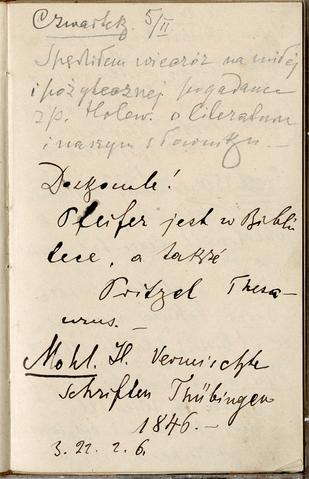 Czwartek 5/II
Spędziłem wieczór na miłej
i pożytecznej pogadance
z p. Holew. o literaturze
i naszym słowniku. —
Doskonale!
Pfeifer jest w Biblio
tece, a także
Pritzel Thesa-
urus. —
Mohl. H. Vermischte
Schriften Thübingen
1846. —
3. 21. 2. 6.